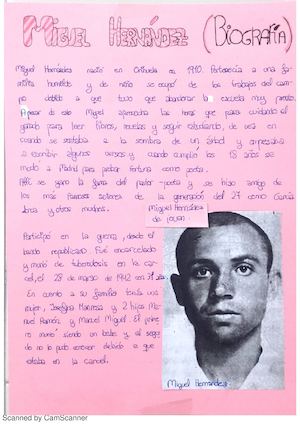 MIGUEL HERNÁNDEZ (BIOGRAFÍA)
Miguel Hernández nació en Orihuela en 1910. Pertenecía a una fa-
milia humilde y de niño se ocupó de los trabajos del cam-
po debido a que tuvo que abandonar la escuela muy pronto.
A pesar de esto Miguel aprovecha las horas que pasa cuidando el
ganado para leer libros, novelas y seguir estudiando, de vez en
cuando se sentaba a la sombra de un árbol y empezaba
a escribir algunos versos y cuando cumplió los 18 años se
mudó a Madrid para probar fortuna como poeta.
Allí se ganó la fama del pastor-poeta y se hizo amigo de
los más famosos autores de la generación del 27 como García
Lorca y otros muchos.
Miguel Hernández
de joven
Participó en la guerra, desde el
bando republicano. Fue encarcelado
y murió de tuberculosis en la cár-
cel, el 28 de marzo de 1942 con 31 años.
En cuanto a su familia tenía una
mujer, Josefina Manresa y 2 hijos Ma-
nuel Ramón y Manuel Miguel. El prime
ro murió siendo un bebé y al segun
do no lo pudo conocer debido a que
estaba en la cárcel.
Miguel Hernández
Scanned by CamScanner